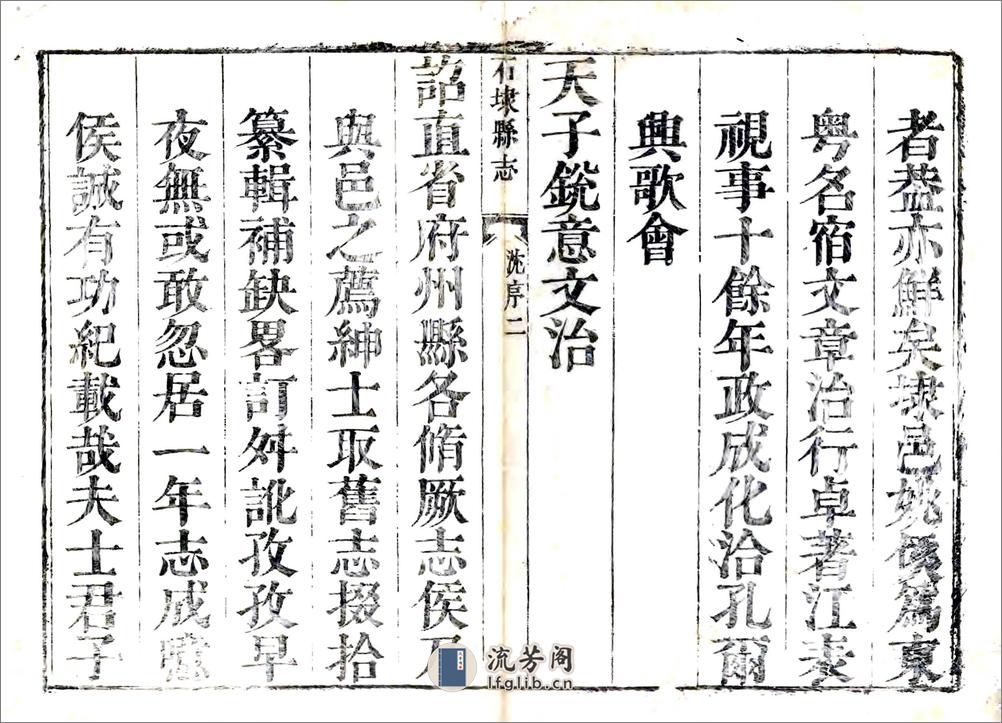 者葢亦鮮矣埭邑姚侯篤東
粤名宿文章治行卓著江表
視事十餘年政成化洽孔爾
興歌會
天子銳意文治
石埭縣志
沈序二
詔直省府州縣各脩厥志侯乃
與邑之薦紳士取舊志掇拾
纂輯補缺畧訂舛訛孜孜早
夜無或敢忽居一年志成噫
侯誠有功紀載哉夫士君子
流芳阁
lfglib.cn